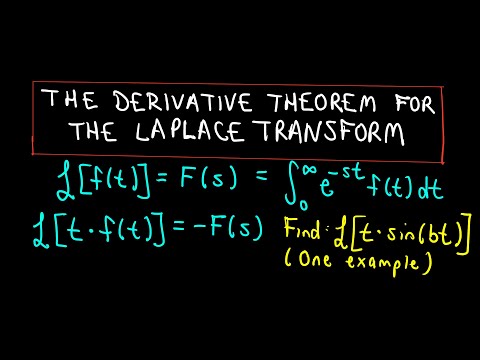 THE DERIVATIVE THEOREM FOR
THE LAPLACE TRANSFORM
ℒ[f(t)] = F(s) = ∫₀^∞ e^{-st} f(t) dt
ℒ[t·f(t)] = -F(s)
Find: ℒ[t·sin(bt)]
(One example)